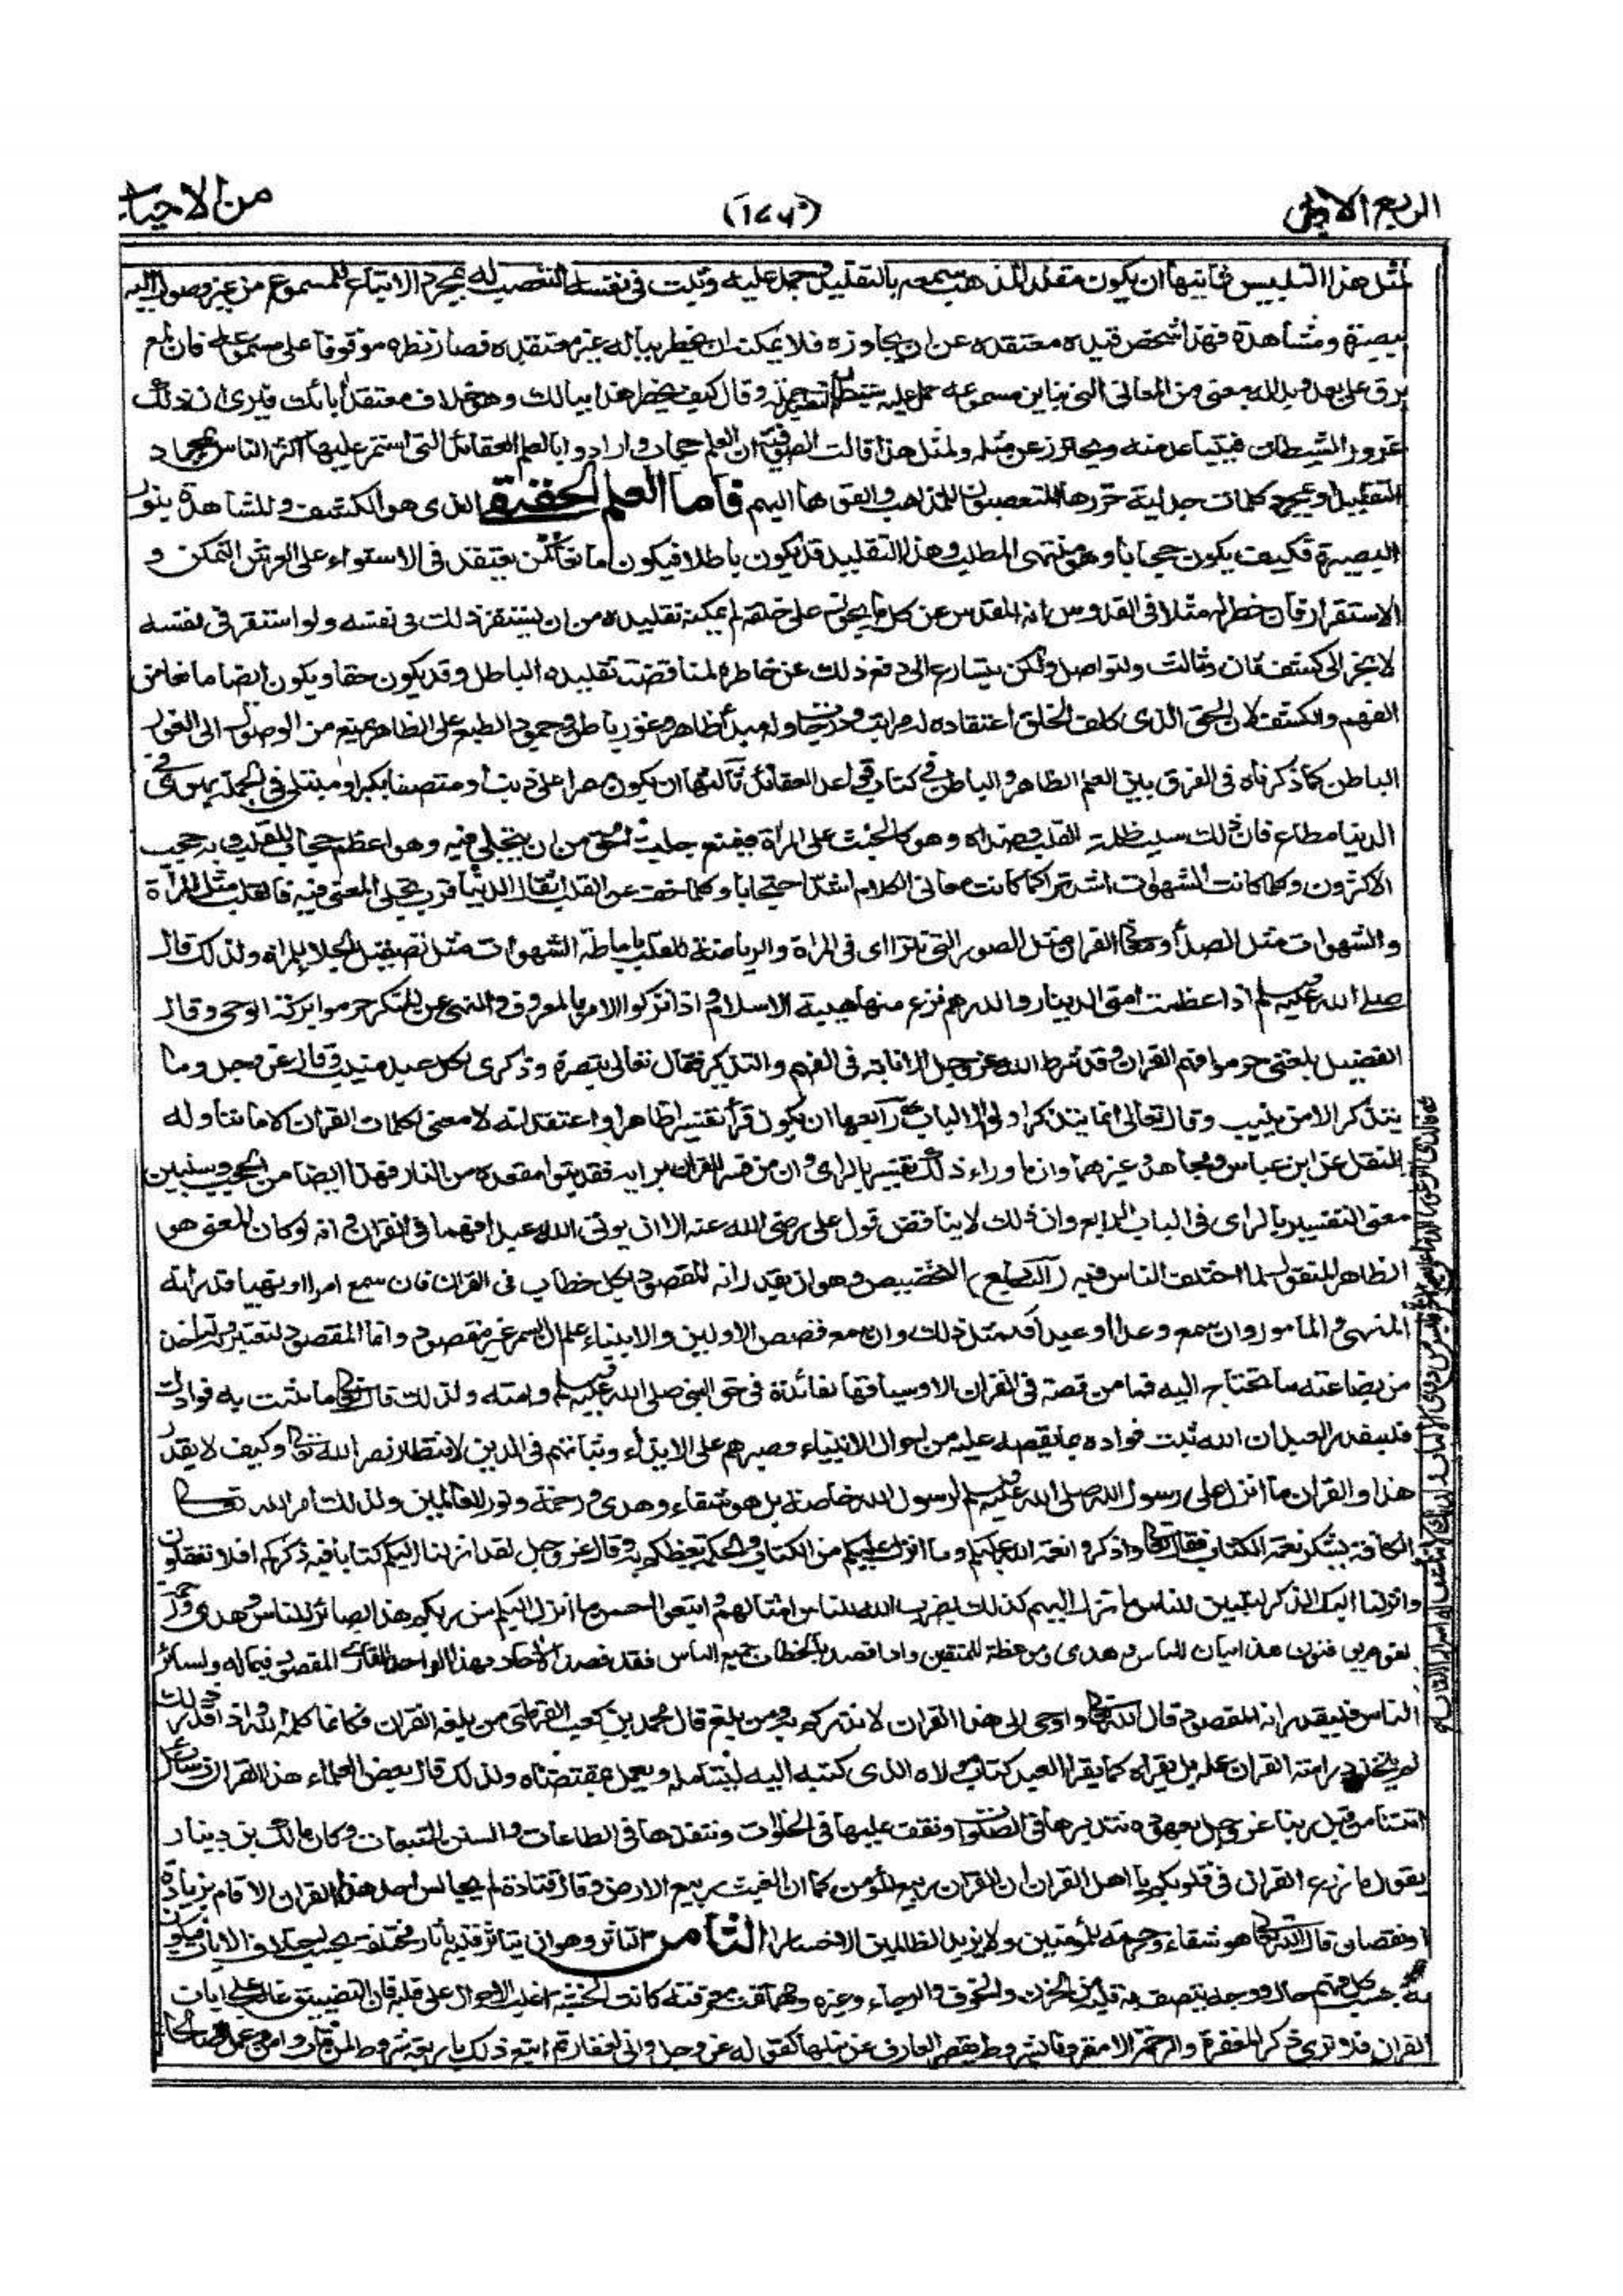 الربع الاول
من الاحياء
مثل هذا التلبيس ثانيها ان يكون مقلدا لمذهب سمعه بالتقليد وجمد عليه وثبت في نفسه التعصب له بمجرد الاتباع للمسموع من غير وصول اليه
ببصيرة ومشاهدة فهذا شخص قيده معتقده عن ان يجاوزه فلا يمكنه ان يخطر بباله غير معتقده فصار نظره موقوفا على مسموعه فان لمع
برق على بعد وبدا له معنى من المعاني التي تباين مسموعه حمل عليه شيطان التقليد حملة وقال كيف يخطر هذا ببالك وهو خلاف معتقد ابائك فيرى ان ذلك
غرور الشيطان فيتباعد منه ويحترز عن مثله ولمثل هذا قالت الصوفية ان العلم حجاب وارادوا بالعلم العقائد التي استمر عليها اكثر الناس بمجرد
التقليد او بمجرد كلمات جدلية حررها المتعصبون للمذاهب والقوها اليهم فاما العلم الحقيقي الذي هو الكشف والمشاهدة بنور
البصيرة فكيف يكون حجابا وهو منتهى المطلب وهذا التقليد قد يكون باطلا فيكون مانعا كمن يعتقد في الاستواء على العرش التمكن و
الاستقرار فان خطر له مثلا في القدوس انه المقدس عن كل ما يجوز على خلقه لم يمكنه تقليده من ان يستقر ذلك في نفسه ولو استقر في نفسه
لانجر الى كشف ثان وثالث ولتواصل ولكن يتسارع الى دفع ذلك عن خاطره لمناقضته تقليده الباطل وقد يكون حقا ويكون ايضا مانعا من
الفهم والكشف لان الحق الذي كلف الخلق اعتقاده له مراتب ودرجات وله مبدأ ظاهر وغور باطن وجمود الطبع على الظاهر يمنع من الوصول الى الغور
الباطن كما ذكرناه في الفرق بين العلم الظاهر والباطن في كتاب قواعد العقائد ثالثها ان يكون مصرا على ذنب او متصفا بكبر او مبتلى في الجملة بهوى في
الدنيا مطاع فان ذلك سبب ظلمة القلب وصداه وهو كالخبث على المرآة فيمنع جلية الحق من ان يتجلى فيه وهو اعظم حجاب للقلب وبه حجب
الاكثرون وكلما كانت الشهوات اشد تراكما كانت معاني الكلام اشد احتجابا وكلما خف عن القلب اثقال الدنيا قرب تجلى المعنى فيه فالقلب مثل المرآة
والشهوات مثل الصدأ ومعاني القران مثل الصور التي تتراأى في المرآة والرياضة للقلب باماطة الشهوات مثل تصقيل الجلاء للمرآة ولذلك قال
صلى الله عليه وسلم اذا عظمت امتي الدينار والدرهم نزع منها هيبة الاسلام واذا تركوا الامر بالمعروف والنهي عن المنكر حرموا بركة الوحي وقال
الفضيل يعني حرموا فهم القران وقد شرط الله عز وجل الانابة في الفهم والتذكير فقال تعالى تبصرة وذكرى لكل عبد منيب وقال عز وجل وما
يتذكر الا من ينيب وقال تعالى انما يتذكر اولوا الالباب رابعها ان يكون قرأ تفسيرا ظاهرا واعتقد انه لا معنى لكلمات القران الا ما تناوله
النقل عن ابن عباس ومجاهد وغيرهما وان ما وراء ذلك تفسير بالراى وان من فسر القران برايه فقد تبوا مقعده من النار فهذا ايضا من الحجب وسنبين
معنى التفسير بالراى في الباب الرابع وان ذلك لا يناقض قول على رضي الله عنه الا ان يوتى الله عبدا فهما في القران وانه لو كان المعنى هو
الظاهر المنقول لما اختلف الناس فيه السابع التخصيص وهو ان يقدر انه المقصود بكل خطاب في القران فان سمع امرا او نهيا قدر انه
المنهي والمأمور وان سمع وعدا او وعيدا فكمثل ذلك وان سمع قصص الاولين والانبياء علم ان السمر غير مقصود وانما المقصود ليعتبر به وليأخذ
من تضاعيفه ما يحتاج اليه فما من قصة في القران الا وسياقها لفائدة في حق النبي صلى الله عليه وسلم وامته ولذلك قال تعالى ما نثبت به فوادك
فليقدر العبد ان الله ثبت فواده بما يقصه عليه من احوال الانبياء وصبرهم على الايذاء وثباتهم في الدين لانتظار نصر الله تعالى وكيف لا يقدر
هذا والقران ما انزل على رسول الله صلى الله عليه وسلم لرسول الله خاصة بل هو شفاء وهدى ورحمة ونور للعالمين ولذلك امر الله تعالى
الكافة بشكر نعمة الكتاب فقال تعالى واذكروا نعمة الله عليكم وما انزل عليكم من الكتاب والحكمة يعظكم به وقال عز وجل لقد انزلنا اليكم كتابا فيه ذكركم افلا تعقلون
وانزلنا اليك الذكر لتبين للناس ما نزل اليهم كذلك يضرب الله للناس امثالهم واتبعوا احسن ما انزل اليكم من ربكم هذا بصائر للناس وهدى ورحمة
لقوم يوقنون هذا بيان للناس وهدى وموعظة للمتقين واذا قصد بالخطاب جميع الناس فقد قصد الآحاد فهذا الواحد القارئ المقصود فيما له ولسائر
الناس فليقدر انه المقصود قال الله تعالى واوحي الي هذا القران لانذركم به ومن بلغ قال محمد بن كعب القرظي من بلغه القران فكانما كلمه الله واذا قدر ذلك
لم يتخذ دراسة القران عمله بل يقراه كما يقرا العبد كتاب مولاه الذي كتبه اليه ليتامله ويعمل بمقتضاه ولذلك قال بعض العلماء هذا القران رسائل
اتتنا من قبل ربنا عز وجل بعهوده نتدبرها في الصلوات ونقف عليها في الخلوات وننفذها في الطاعات والسنن المتبعات وكان مالك بن دينار
يقول ما زرع القران في قلوبكم يا اهل القران ان القران ربيع المؤمن كما ان الغيث ربيع الارض وقال قتادة لم يجالس احد هذا القران الا قام بزيادة
او نقصان قال الله تعالى هو شفاء ورحمة للمؤمنين ولا يزيد الظالمين الا خسارا الثامن التاثر وهو ان يتاثر قلبه باثار مختلفة بحسب اختلاف الايات فيكون
له بحسب كل فهم حال ووجد يتصف به قلبه من الحزن والخوف والرجاء وغيره ومهما تمت معرفته كانت الخشية اغلب الاحوال على قلبه فان التضييق غالب على ايات
القران فلا ترى ذكر المغفرة والرحمة الا مقرونا بشروط يقصر العارف عن نيلها كقوله عز وجل واني لغفار ثم اتبع ذلك باربعة شروط لمن تاب وامن وعمل صالحا